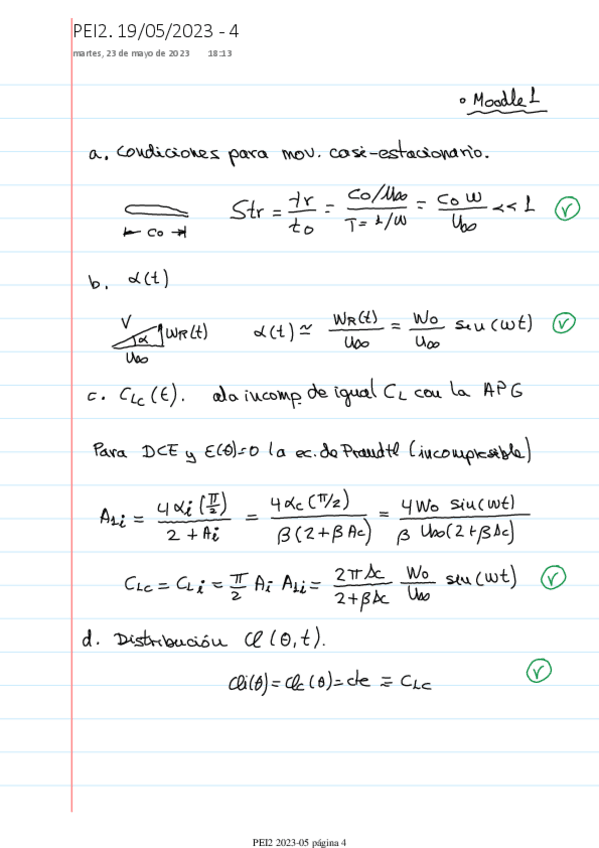 PEI2. 19/05/2023 - 4
martes, 23 de mayo de 2023 18:13
• Moodle 1
a. Condiciones para mov. casi-estacionario.
Str = tr/to = (Co/U∞)/(T = 1/W) = Co W/U∞ << 1
Co
b. α(t)
V α WR(t) U∞ α(t) ≃ WR(t)/U∞ = Wo/U∞ sen(wt)
c. CLc(t). ala incomp. de igual CL con la APG
Para DCE y E(θ)=0 la ec. de Prandtl (incompresible)
A1i = 4αi(π/2)/(2 + Ai) = 4αc(π/2)/(β(2+βAc)) = 4Wo sin(wt)/(β U∞(2+βAc))
CLc = CLi = π/2 Ai A1i = 2πAc/(2+βAc) Wo/U∞ sen(wt)
d. Distribución Cl(θ,t).
Cli(θ) = Clc(θ) = cte = CLc
PEI2 2023-05 página 4